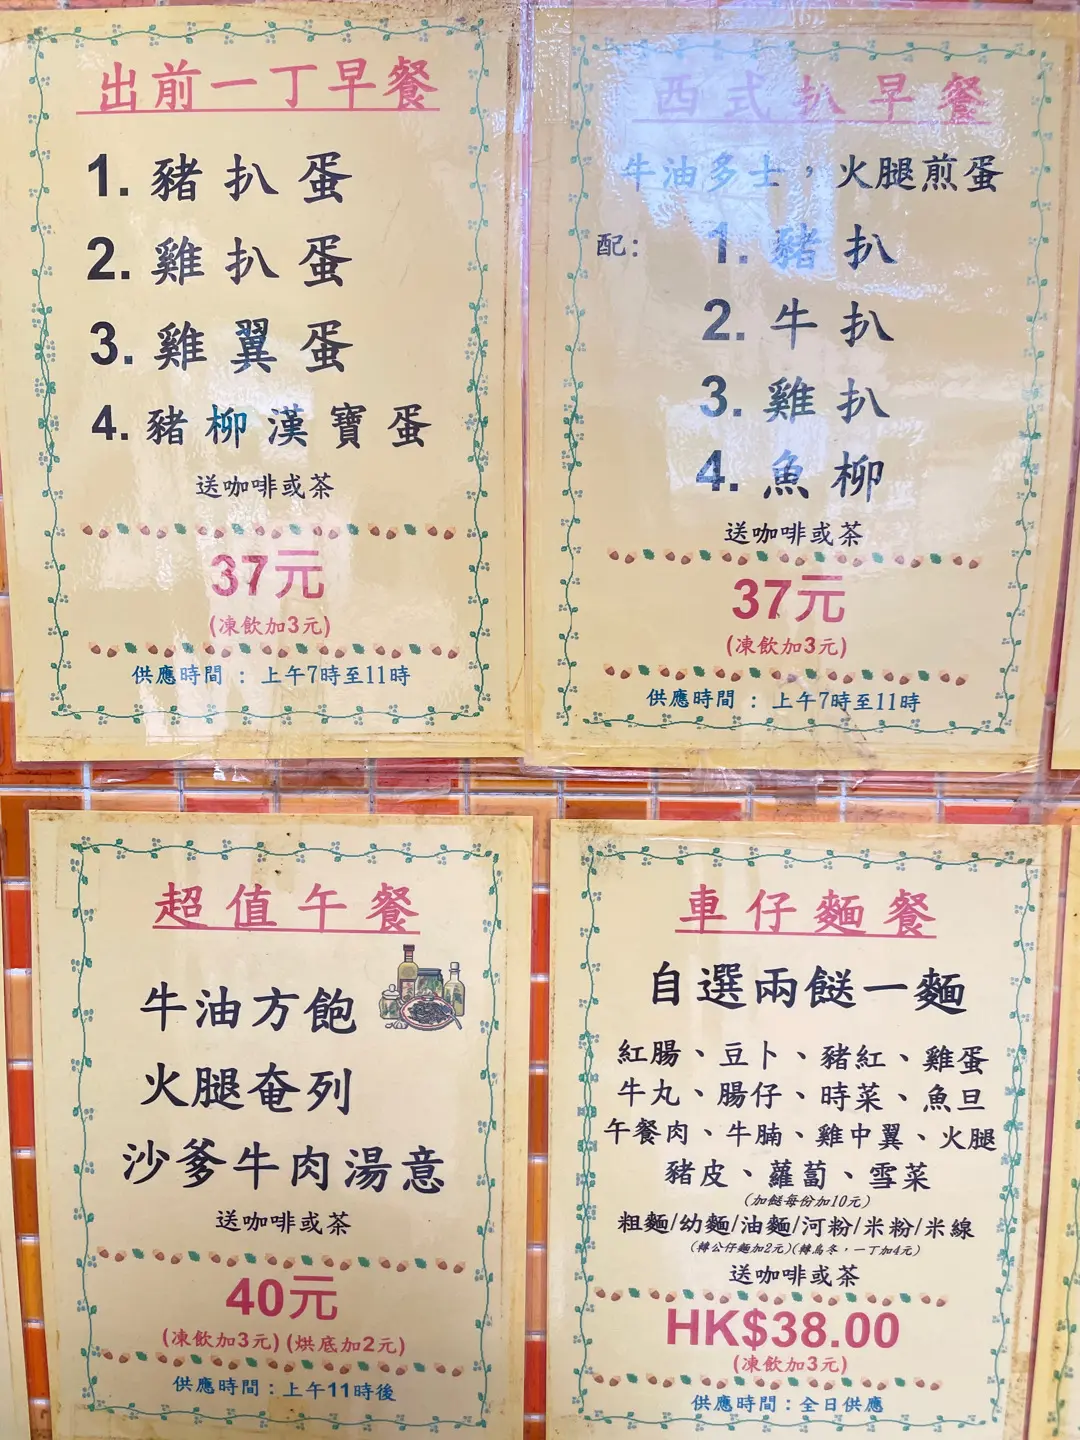 出前一丁早餐
1. 豬扒蛋
2. 雞扒蛋
3. 雞翼蛋
4. 豬柳漢寶蛋
送咖啡或茶
37元
(凍飲加3元)
供應時間：上午7時至11時
西式扒早餐
牛油多士，火腿煎蛋
配： 1. 豬扒
2. 牛扒
3. 雞扒
4. 魚柳
送咖啡或茶
37元
(凍飲加3元)
供應時間：上午7時至11時
超值午餐
牛油方飽
火腿奄列
沙爹牛肉湯意
送咖啡或茶
40元
(凍飲加3元)(烘底加2元)
供應時間：上午11時後
車仔麵餐
自選兩餸一麵
紅腸、豆卜、豬紅、雞蛋
牛丸、腸仔、時菜、魚旦
午餐肉、牛腩、雞中翼、火腿
豬皮、蘿蔔、雪菜
(加餸每份加10元)
粗麵/幼麵/油麵/河粉/米粉/米線
(轉公仔麵加2元)(轉烏冬，一丁加4元)
送咖啡或茶
HK$38.00
(凍飲加3元)
供應時間：全日供應